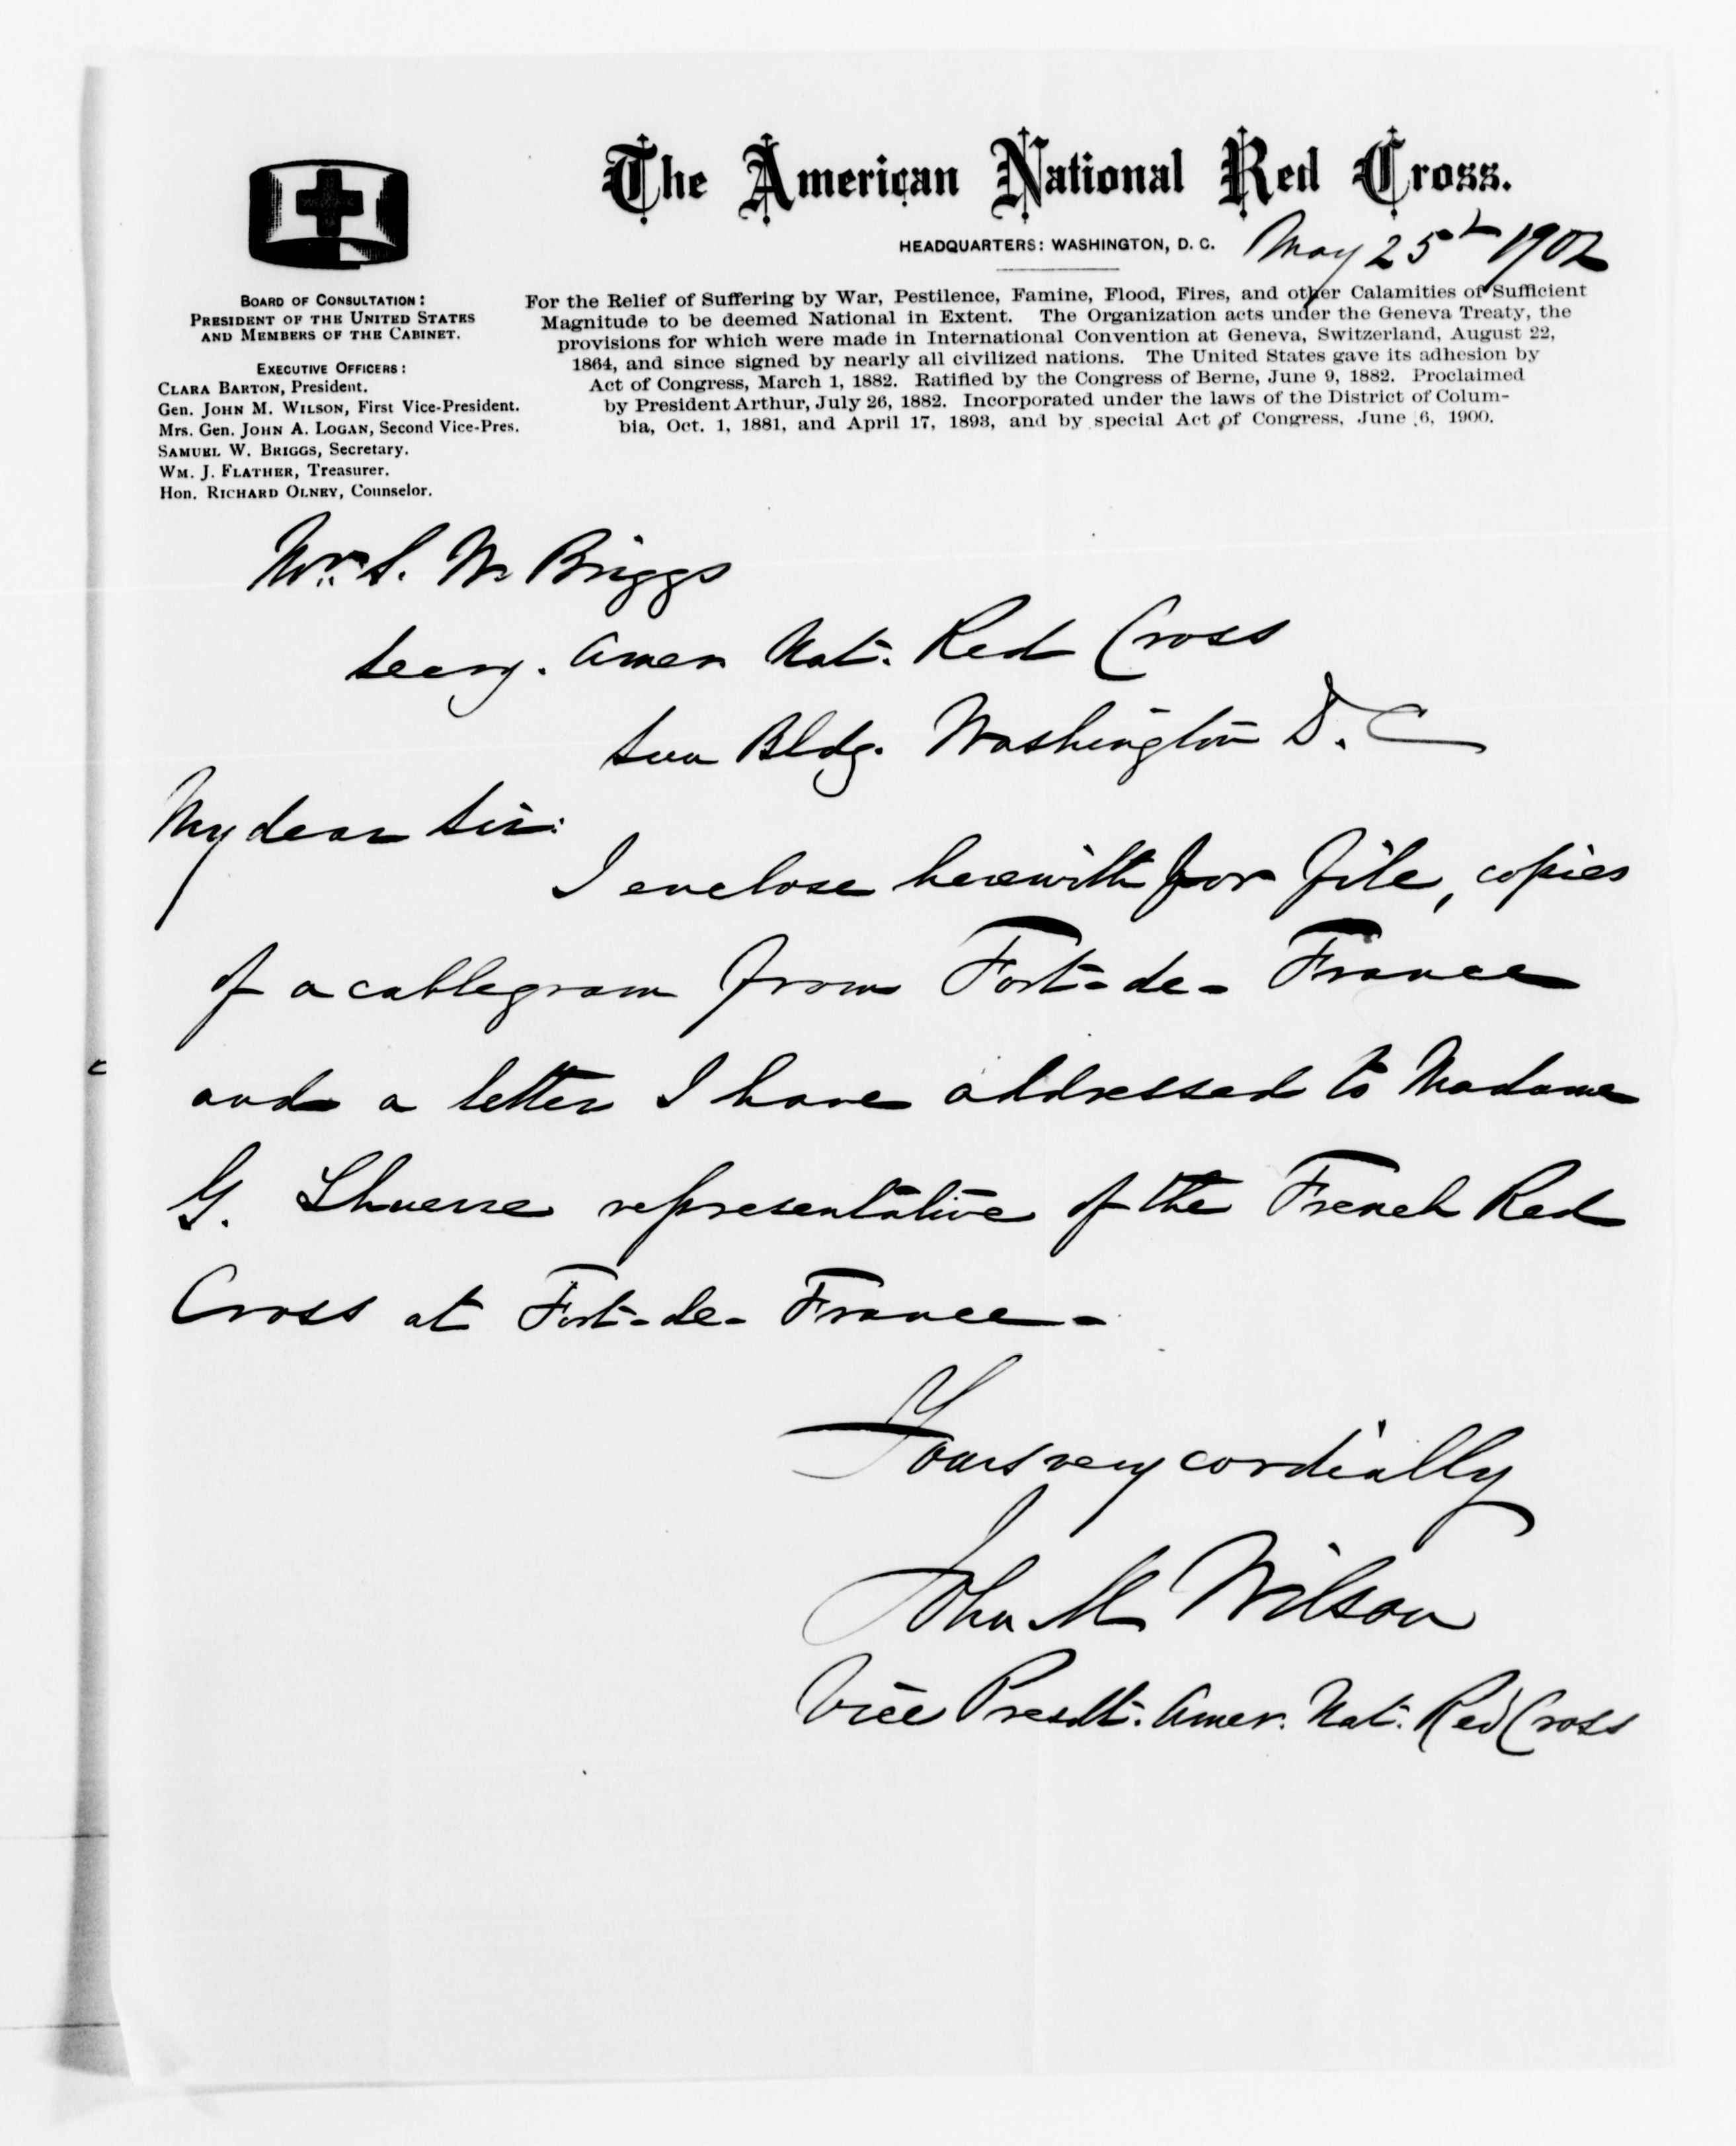 The American National Red Cross.
HEADQUARTERS: WASHINGTON, D. C. May 25th 1902
BOARD OF CONSULTATION:
PRESIDENT OF THE UNITED STATES
AND MEMBERS OF THE CABINET.
EXECUTIVE OFFICERS:
CLARA BARTON, President.
Gen. JOHN M. WILSON, First Vice-President.
Mrs. Gen. JOHN A. LOGAN, Second Vice-Pres.
SAMUEL W. BRIGGS, Secretary.
WM. J. FLATHER, Treasurer.
Hon. RICHARD OLNEY, Counselor.
For the Relief of Suffering by War, Pestilence, Famine, Flood, Fires, and other Calamities of Sufficient
Magnitude to be deemed National in Extent. The Organization acts under the Geneva Treaty, the
provisions for which were made in International Convention at Geneva, Switzerland, August 22,
1864, and since signed by nearly all civilized nations. The United States gave its adhesion by
Act of Congress, March 1, 1882. Ratified by the Congress of Berne, June 9, 1882. Proclaimed
by President Arthur, July 26, 1882. Incorporated under the laws of the District of Colum-
bia, Oct. 1, 1881, and April 17, 1893, and by special Act of Congress, June 6, 1900.
Mr. S. W. Briggs
Secy. Amer. Nat. Red Cross
Sun Bldg. Washington D. C
My dear Sir:
I enclose herewith for file, copies
of a cablegram from Fort-de-France
and a letter I have addressed to Madame
G. representative of the French Red
Cross at Fort-de-France-
Yours very cordially
John M Wilson
Vice Presdt. Amer. Nat. Red Cross